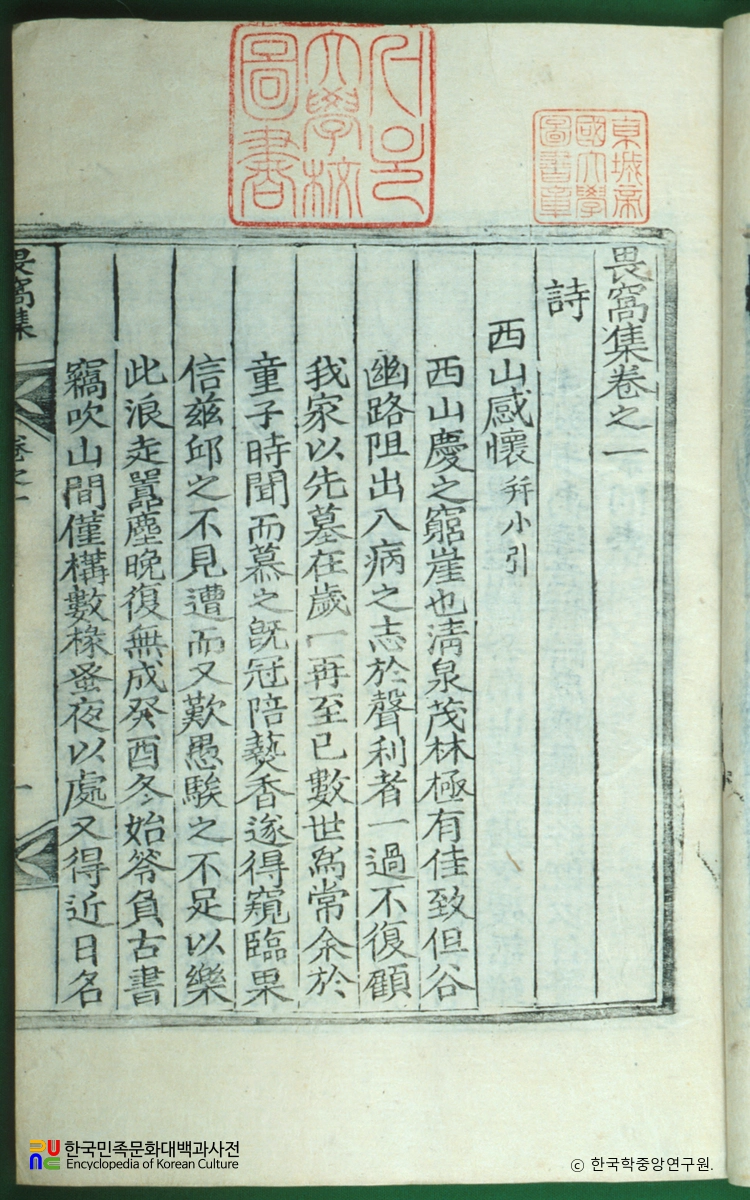 서울
大學校
圖書
東城帝
國大學
圖書章
畏窩集卷之一
詩
西山感懷 幷小引
西山慶之窮崖也淸泉茂林極有佳致但谷
幽路阻出入病之志於聲利者一過不復顧
我家以先墓在歲一再至已數世爲常余於
童子時聞而慕之旣冠陪爇香遂得窺臨果
信玆邱之不見遭而又歎愚騃之不足以樂
此浪走囂塵晩復無成癸酉冬始笭負古書
竊吹山間僅構數椽蚤夜以處又得近日名
畏窩集
卷之一
一
한국민족문화대백과사전
Encyclopedia of Korean Culture
ⓒ 한국학중앙연구원.